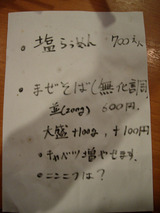 ・塩らーめん 700えん
・まぜそば(無化調)
並(200g) 600円
大盛 +100g, +100円
・キャベツ増やせます。
・ニンニクは?